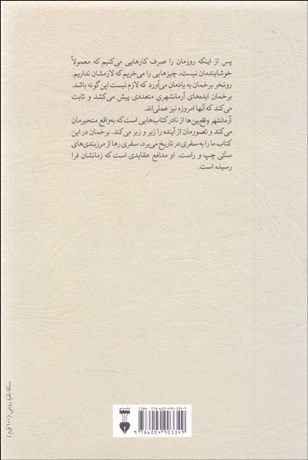 پس از اینکه روزمان را صرف کارهایی می‌کنیم که معمولاً
خوشایندمان نیست، چیزهایی را می‌خریم که لازمشان نداریم.
روتخر برخمان به یادمان می‌آورد که لازم نیست این‌گونه باشد.
برخمان ایده‌های آرمانشهریِ متعددی پیش می‌کشد و ثابت
می‌کند که آنها امروزه نیز عملی‌اند.
آرمانشهر واقع‌بین‌ها از نادر کتاب‌هایی است که به‌واقع متحیرمان
می‌کند و تصورمان از آینده را زیر و زبر می‌کند. برخمان در این
کتاب ما را به سفری در تاریخ می‌برد، سفری رها از مرزبندی‌های
سنّتی چپ و راست. او مدافع عقایدی است که زمانشان فرا
رسیده است.